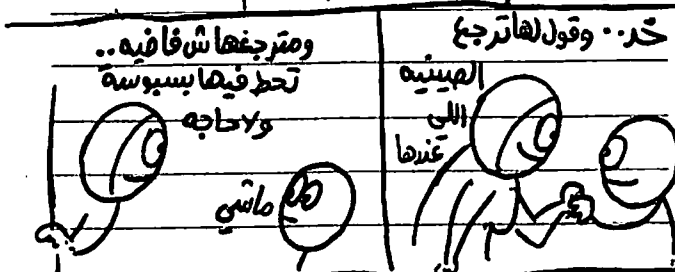 خد.. وقول لها ترجع
الصينيه
اللى
عندها
ومترجعهاش فاضيه..
تحط فيها بسبوسة
ولا حاجه
ماشي